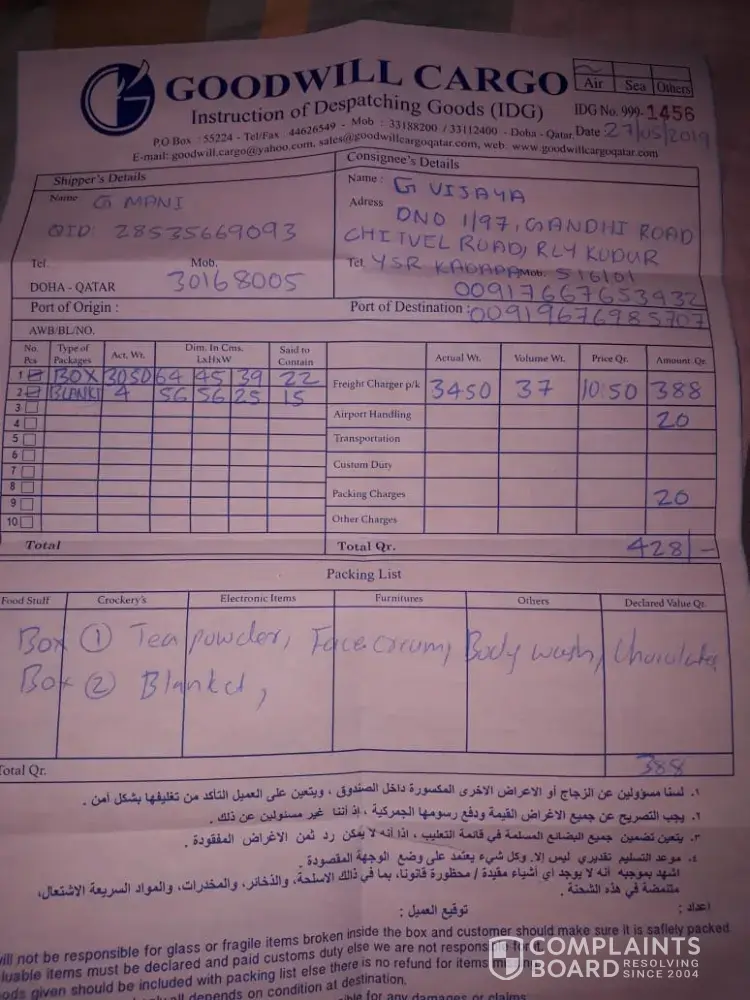 GOODWILL CARGO
Air Sea Others
Instruction of Despatching Goods (IDG)
IDG No. 999-1456
P.O Box : 55224 - Tel/Fax : 44626549 - Mob : 33188200 / 33112400 - Doha - Qatar
Date 27/05/2019
E-mail: goodwill.cargo@yahoo.com, sales@goodwillcargoqatar.com, web: www.goodwillcargoqatar.com
Shipper's Details
Name G MANI
QID: 28535669093
Tel. Mob. 30168005
DOHA - QATAR
Consignee's Details
Name : G VIJAYA
Adress DNO 1/97, GANDHI ROAD
CHITVEL ROAD, RLY KUDUR
Tel. YSR KADAPA Mob. 516101
00917667653932
Port of Origin :
Port of Destination : 00919676985707
AWB/BL/NO.
No. Pcs Type of Packages Act. Wt. Dim. In Cms. LxHxW Said to Contain
1 BOX 3050 64 45 39 22
2 BLANKT 4 56 56 25 15
3
4
5
6
7
8
9
10
Total
Actual Wt. Volume Wt. Price Qr. Amount Qr.
Freight Charger p/k 3450 37 10:50 388
Airport Handling 20
Transportation
Custom Duty
Packing Charges 20
Other Charges
Total Qr. 428/-
Packing List
Food Stuff Crockery's Electronic Items Furnitures Others Declared Value Qr.
Box ① Tea powder, Face cream, Body wash,
Box ② Blanket,
Total Qr. 388
١. لسنا مسؤولين عن الزجاج أو الاعراض الاخرى المكسورة داخل الصندوق ، ويتعين على العميل التأكد من تغليفها بشكل آمن .
٢. يجب التصريح عن جميع الاغراض القيمة ودفع رسومها الجمركية ، إذ أننا غير مسئولين عن ذلك .
٣. يتعين تضمين جميع البضائع المسلمة في قائمة التعليب ، اذا أنه لا يمكن رد ثمن الاغراض المفقودة .
٤. موعد التسليم تقديري ليس إلا. وكل شيء يعتمد على وضع الوجهة المقصودة .
اشهد بموجبه أنه لا يوجد أي أشياء مقيدة / محظورة قانونا، بما في ذلك الاسلحة، والذخائر، والمخدرات، والمواد السريعة الاشتعال،
متنمضة في هذه الشحنة .
اعداد :
توقيع العميل :
will not be responsible for glass or fragile items broken inside the box and customer should make sure it is saflely packed
luable items must be declared and paid customs duty else we are not responsible for it.
ods given should be included with packing list else there is no refund for items
all depends on condition at destination.
ible for any damages or claims
COMPLAINTS
BOARD RESOLVING
SINCE 2004